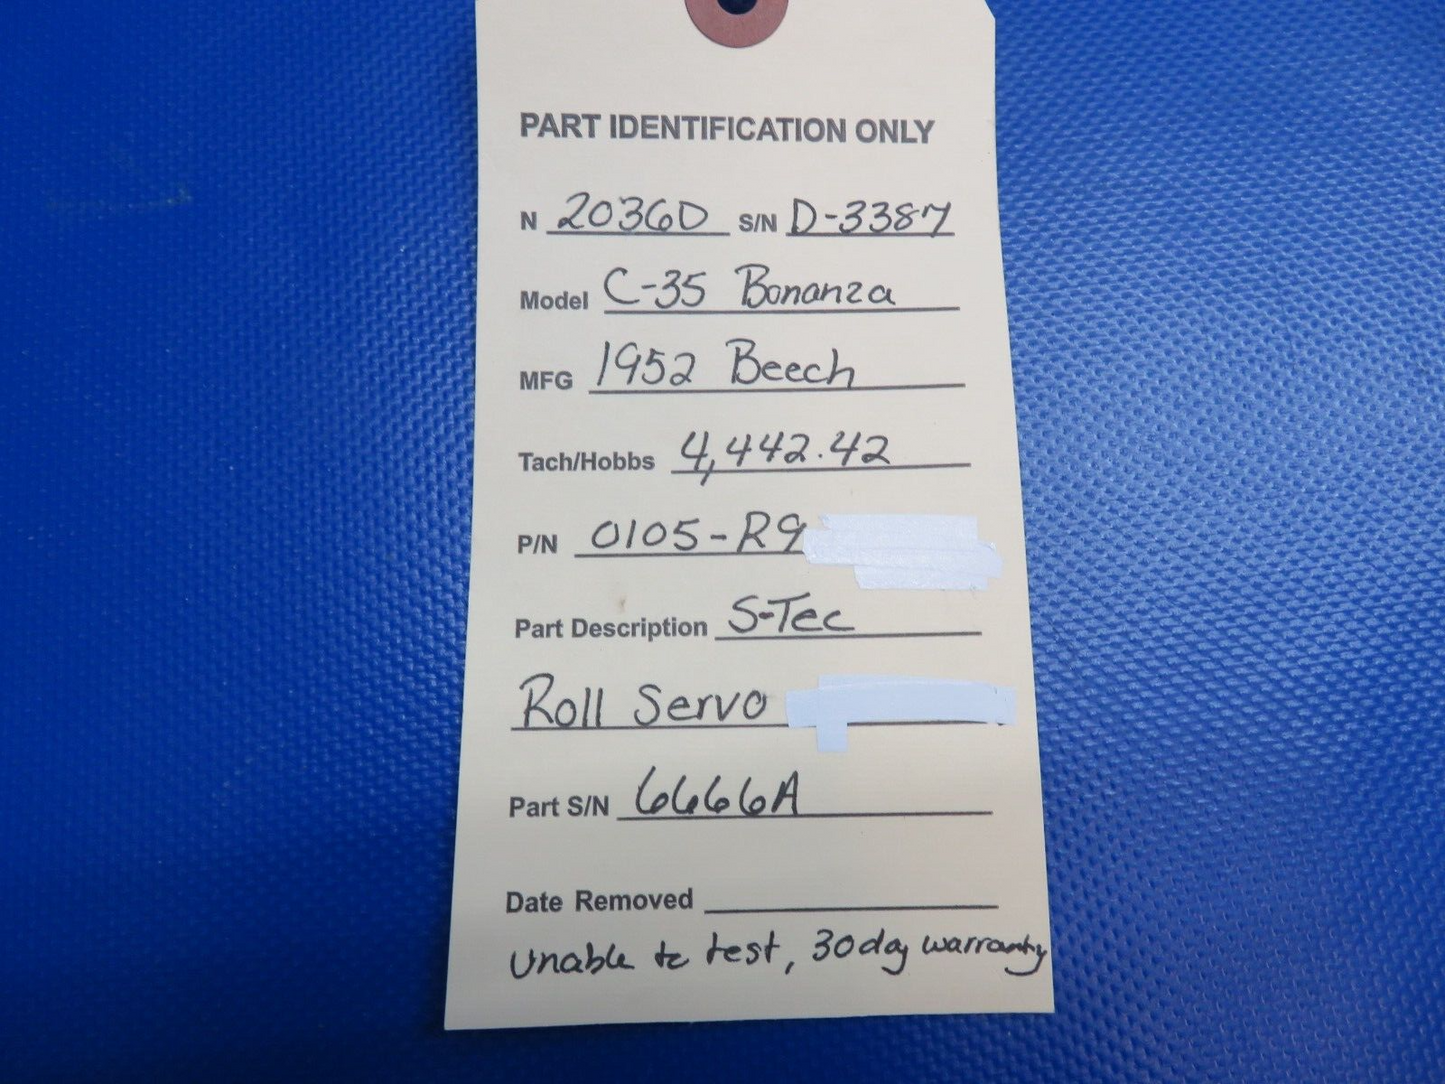 PART IDENTIFICATION ONLY
N 2036D S/N D-3387
Model C-35 Bonanza
MFG 1952 Beech
Tach/Hobbs 4,442.42
P/N 0105-R9
Part Description S-Tec
Roll Servo
Part S/N 6666A
Date Removed
Unable to test, 30 day warranty